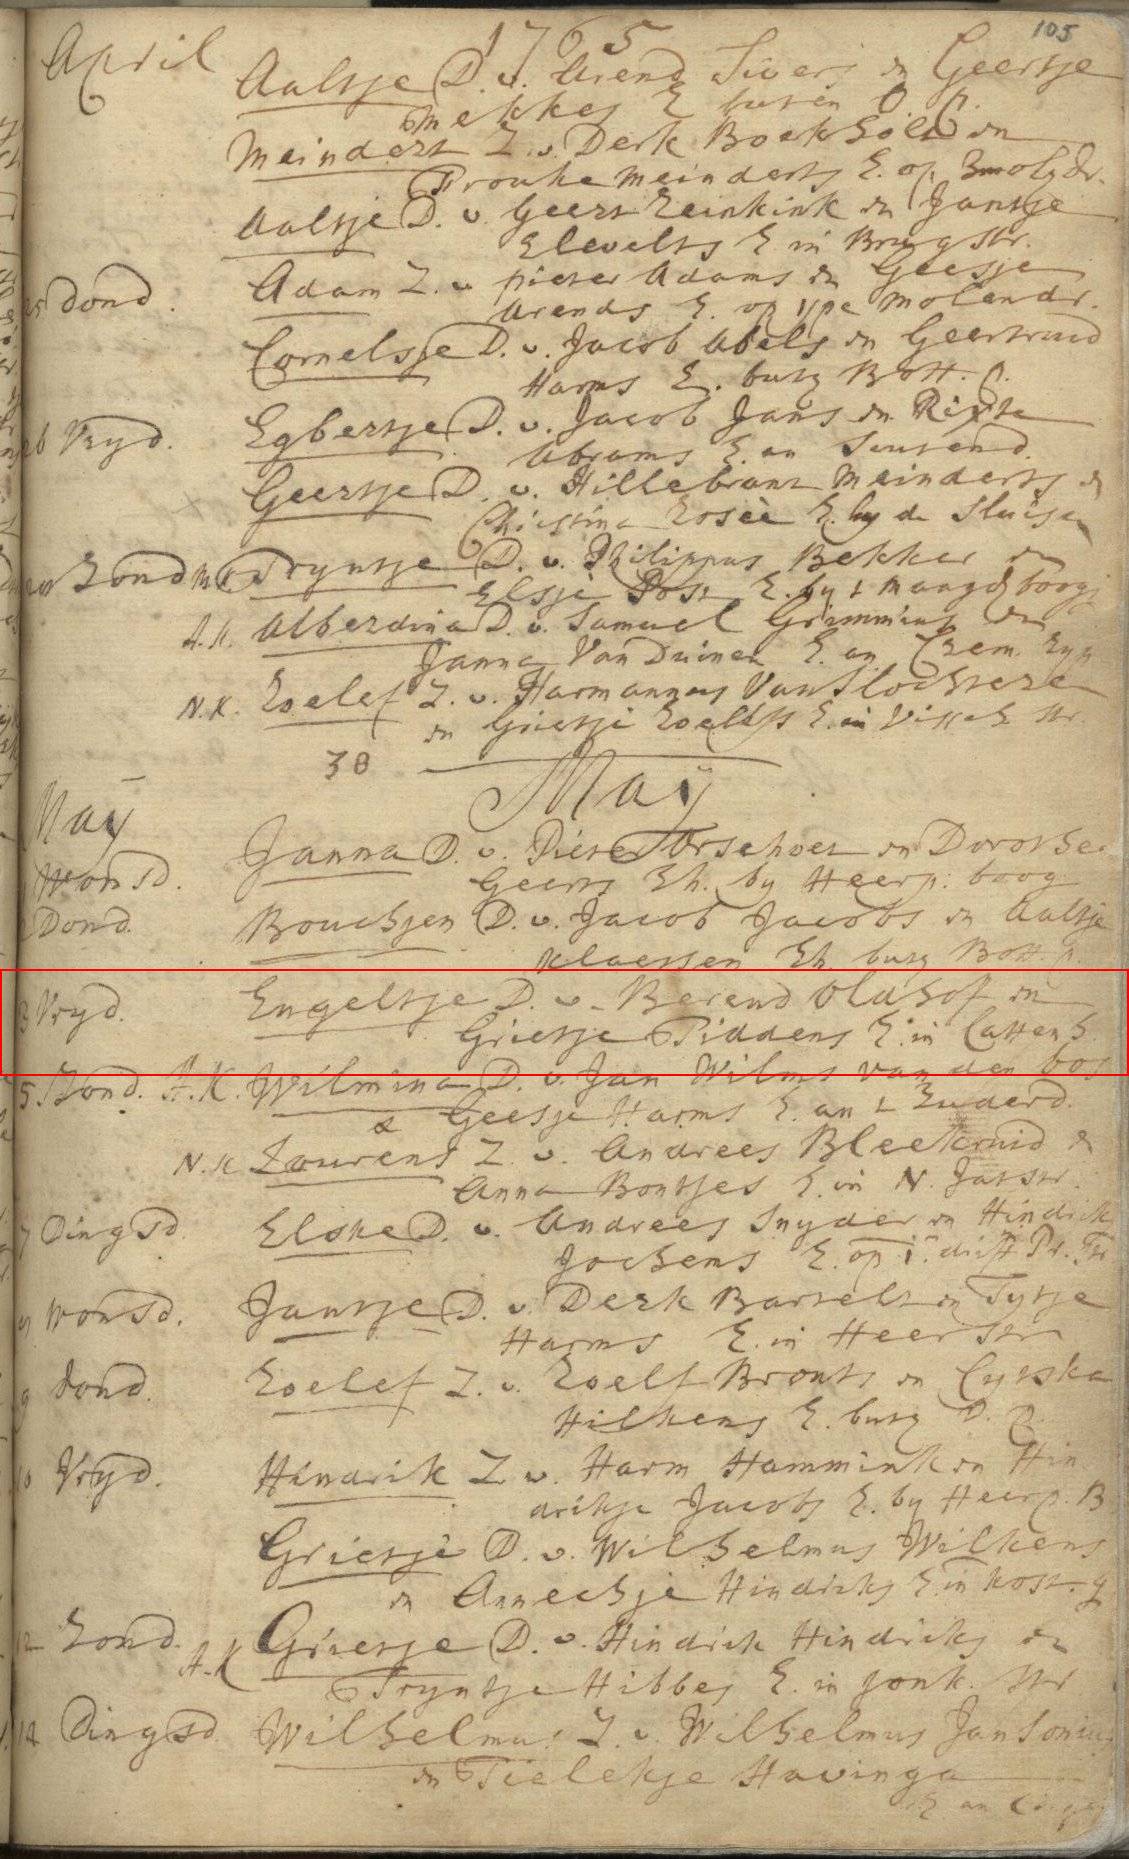 105
April 1765
Aaltje D. v. Arend Sivers en Geertje
Mekkes E buten O. p.
Meindert Z. v. Derk Boekholt en
Frouke Meinderts E. op
Aaltje D. v. Geert Reinkink en Jantje
Elevelts E in Brugstr.
25 Dond. Adam Z. v. pieter Adams en Geesje
Arends E. op ype molendr.
Cornelsje D. v. Jacob Abels en Geertruid
Harms E. buty Bott. p.
26 Vryd. Egbertje D. v. Jacob Jans en Rixte
Abrams E. an
Geertje D. v. Hillebrant Meinderts en
Christina Rosèe E. by de Sluisen
Zond Tryntje D. v. Philippus Bekker en
Elsje Post E. by t
A.K. Alberdina D. v. Samuel Grimmink en
Janna Van Duinen E. an Crem. Ryp
N.K. Roelef Z. v. Harmannus Van Slochtere
en Grietje Roelfs E. in Visscher str.
38
May
May
Wonsd. Janna D. v. Pieter en Dorothea
Geerts Eh. by Heerp. boog
Dond. Bouchjen D. v. Jacob Jacobs en Aaltje
Klaessen Eh. buty Bott. p.
3 Vryd. Engeltje D. v. Berend Oldhof en
Grietje Piddens E. in Catten h.
5 Zond. A.K. Wilmina D. v. Jan Wilms van den bos
& Geesje Harms E. an t Zuiderd.
N.K Lourens Z. v. Andrees Bleekruid en
Anna Bontjes E. in N. Jatstr.
7 Dingsd. Elske D. v. Andrees Snyder en Hindrik
Jochems E. op
Wonsd. Jantje D. v. Derk Bartelt en Tytje
Harms E. in Heerstr
9 Dond. Roelef Z. v. Roelf Bronts en Cyrska
Hilkens E. buty
10 Vryd. Hindrik Z. v. Harm Hammink en Hin
drikje Jacobs E. by Heerp. B
Grietje D. v. Wilhelmus Wilkens
en Annechje Hindriks E in Kost. g
12 Zond. A.K Grietje D. v. Hindrik Hindriks en
Tryntje Hibbes E. in Jonk. str
14 Dingsd Wilhelmus Z. v. Wilhelmus Jansonius
en Tielekje Havinga
E an